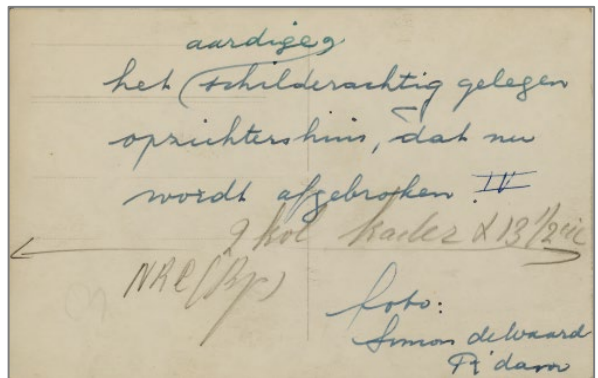 aardige,
het schilderachtig gelegen
opzichtershuis, dat nu
wordt afgebroken. IV
2 kol kader x 13 1/2 cic
NRC (Rp)
foto:
Simon de Waard
R'dam